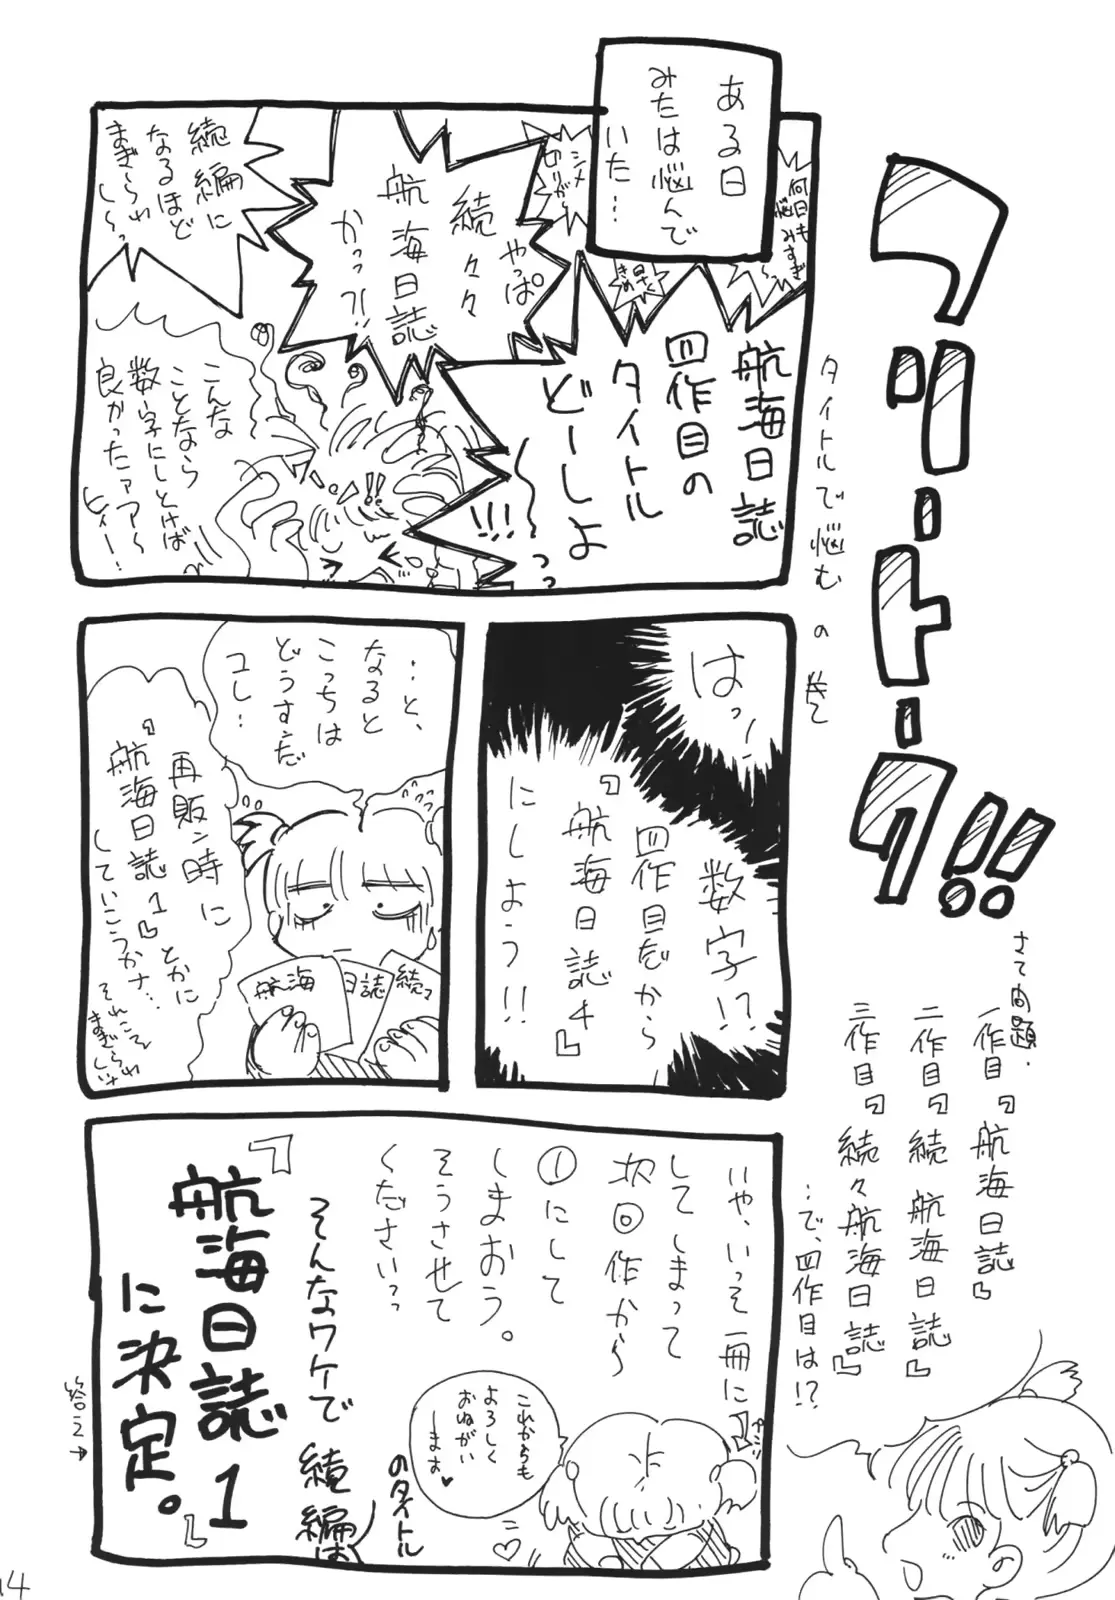 フリートーク!!
タイトルで悩むの巻
さて問題.
一作目『航海日誌』
二作目『続航海日誌』
三作目『続々航海日誌』
…で、四作目は!?
ある日
みたは悩んで
いた…
何日も
悩みすぎ
〜〜
早く
きめ
シメ
キリが
航海日誌
四作目の
タイトル
どーしよ
〜〜っっ
!!!
やっぱ
続々々
航海日誌
かっ?!!
続編に
なるほど
まぎらわ
し〜っ
こんな
ことなら
数字にしとけば
良かったァァ〜
ヒィー!
はっ!
数字!?
四作目だから
『航海日誌4』
にしよう!!
…と、
なると
こっちは
どうすんだ
コレ…
航海
日誌
続々
再販ン時に
『航海日誌1』とかに
していこうかナ…
それこそ
まぎらわ
しいナ
いや、いっそ一冊に
してしまって
次回作から
①にして
しまおう。
そうさせて
くださいっっ
ペコ
これからも
よろしく
おねがい
します♥
そんなワケで
続編は
のタイトル
『航海日誌1』
に決定。
答え→
14